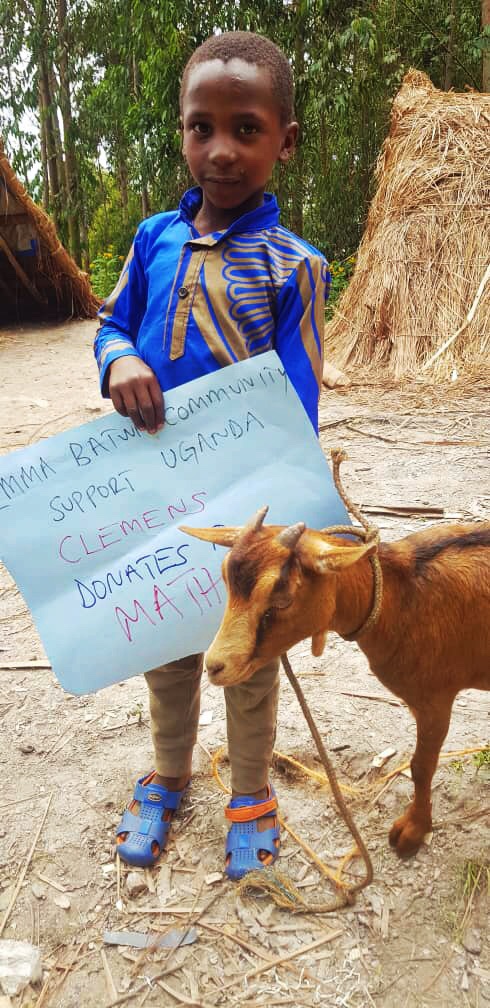 EMMA BATWA COMMUNITY
SUPPORT UGANDA
CLEMENS
DONATES
MATH